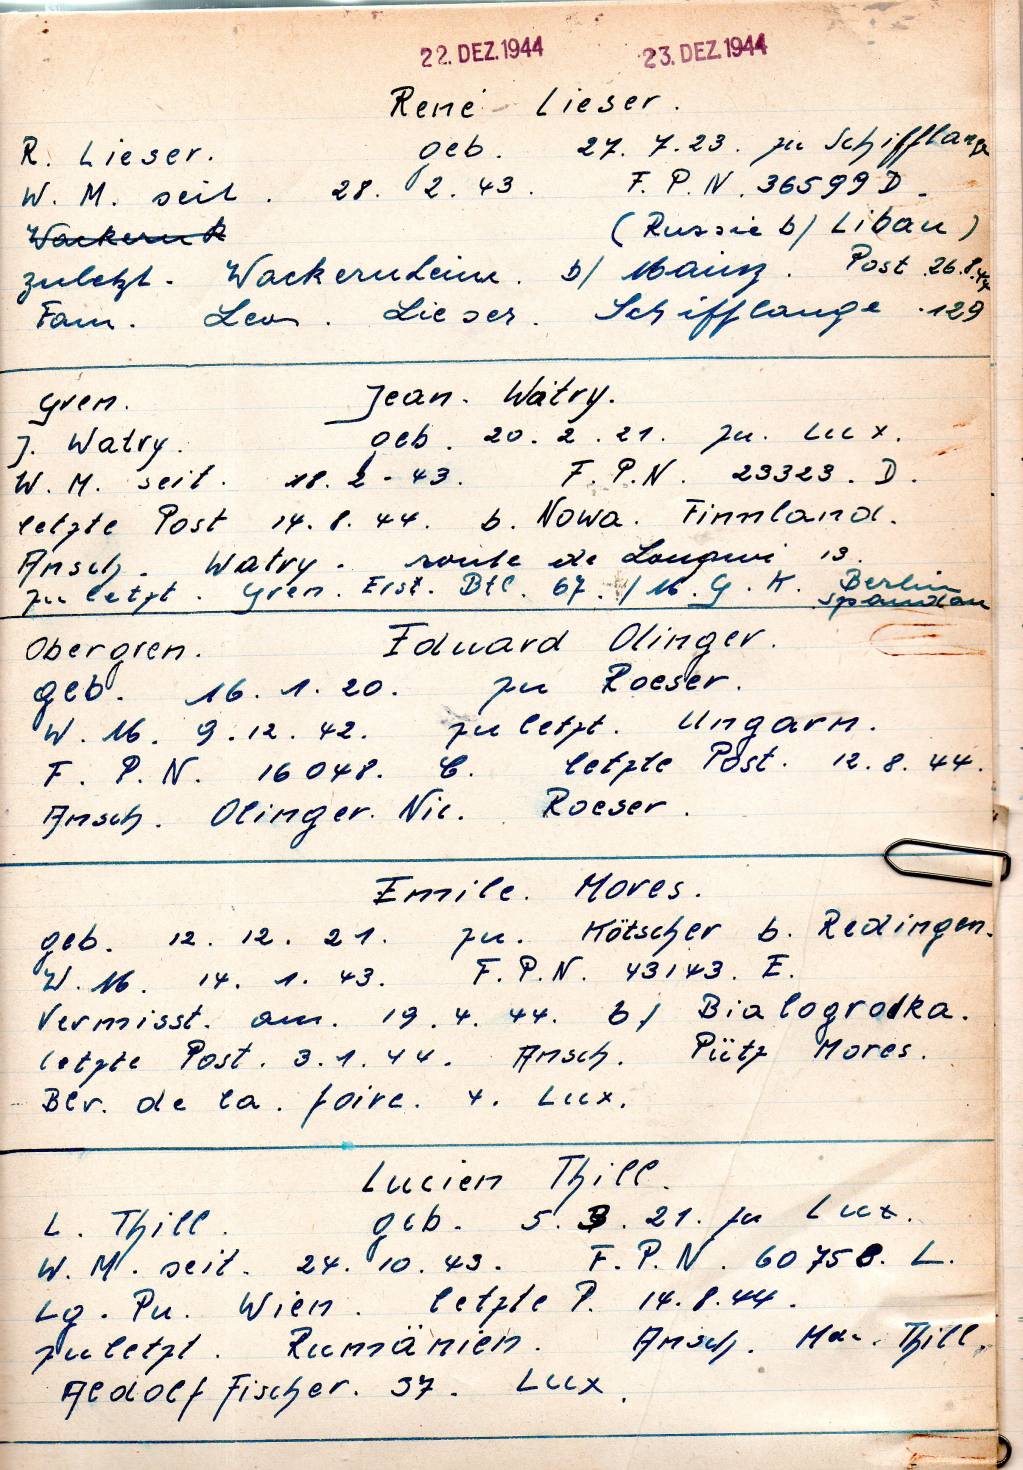 22. DEZ. 1944 23. DEZ. 1944
René Lieser.
R. Lieser. geb. 27. 7. 23. zu Schifflange
W. M. seit. 28. 2. 43. F. P. N. 36599 D.
(Russie b/ Libau)
zuletzt. Wackernheim. b/ Mainz. Post 26.8.44
Fam. Leon. Lieser. Schifflange. 129
Gren. Jean. Watry.
J. Watry. geb. 20. 2. 21. zu. Lux.
W. M. seit. 18. 2. 43. F. P. N. 23323. D.
letzte Post 14. 8. 44. b. Nowa. Finnland.
Ansch. Watry. route de Longwi 13.
zuletzt. Gren. Erst. Btl. 67. / M. G. K. Berlin Spandau
Obergren. Eduard Olinger.
geb. 16. 1. 20. zu Roeser.
W. M. 9. 12. 42. zuletzt. Ungarn.
F. P. N. 16048. C. letzte Post. 12. 8. 44.
Ansch. Olinger. Nic. Roeser.
Emile. Mores.
geb. 12. 12. 21. zu. Kötscher b. Redingen.
W. M. 14. 1. 43. F. P. N. 43143. E.
Vermisst. am. 19. 4. 44. b/ Bialogrodka.
letzte Post. 3. 1. 44. Ansch. Pütz Mores.
Blv. de la. foire. 4. Lux.
Lucien Thill.
L. Thill. geb. 5. 3. 21. zu Lux.
W. M. seit. 24. 10. 43. F. P. N. 60758. L.
Lg. Pu. Wien. letzte P. 14. 8. 44.
zuletzt. Rumänien. Ansch. Thill.
Aldolf Fischer. 37. Lux.